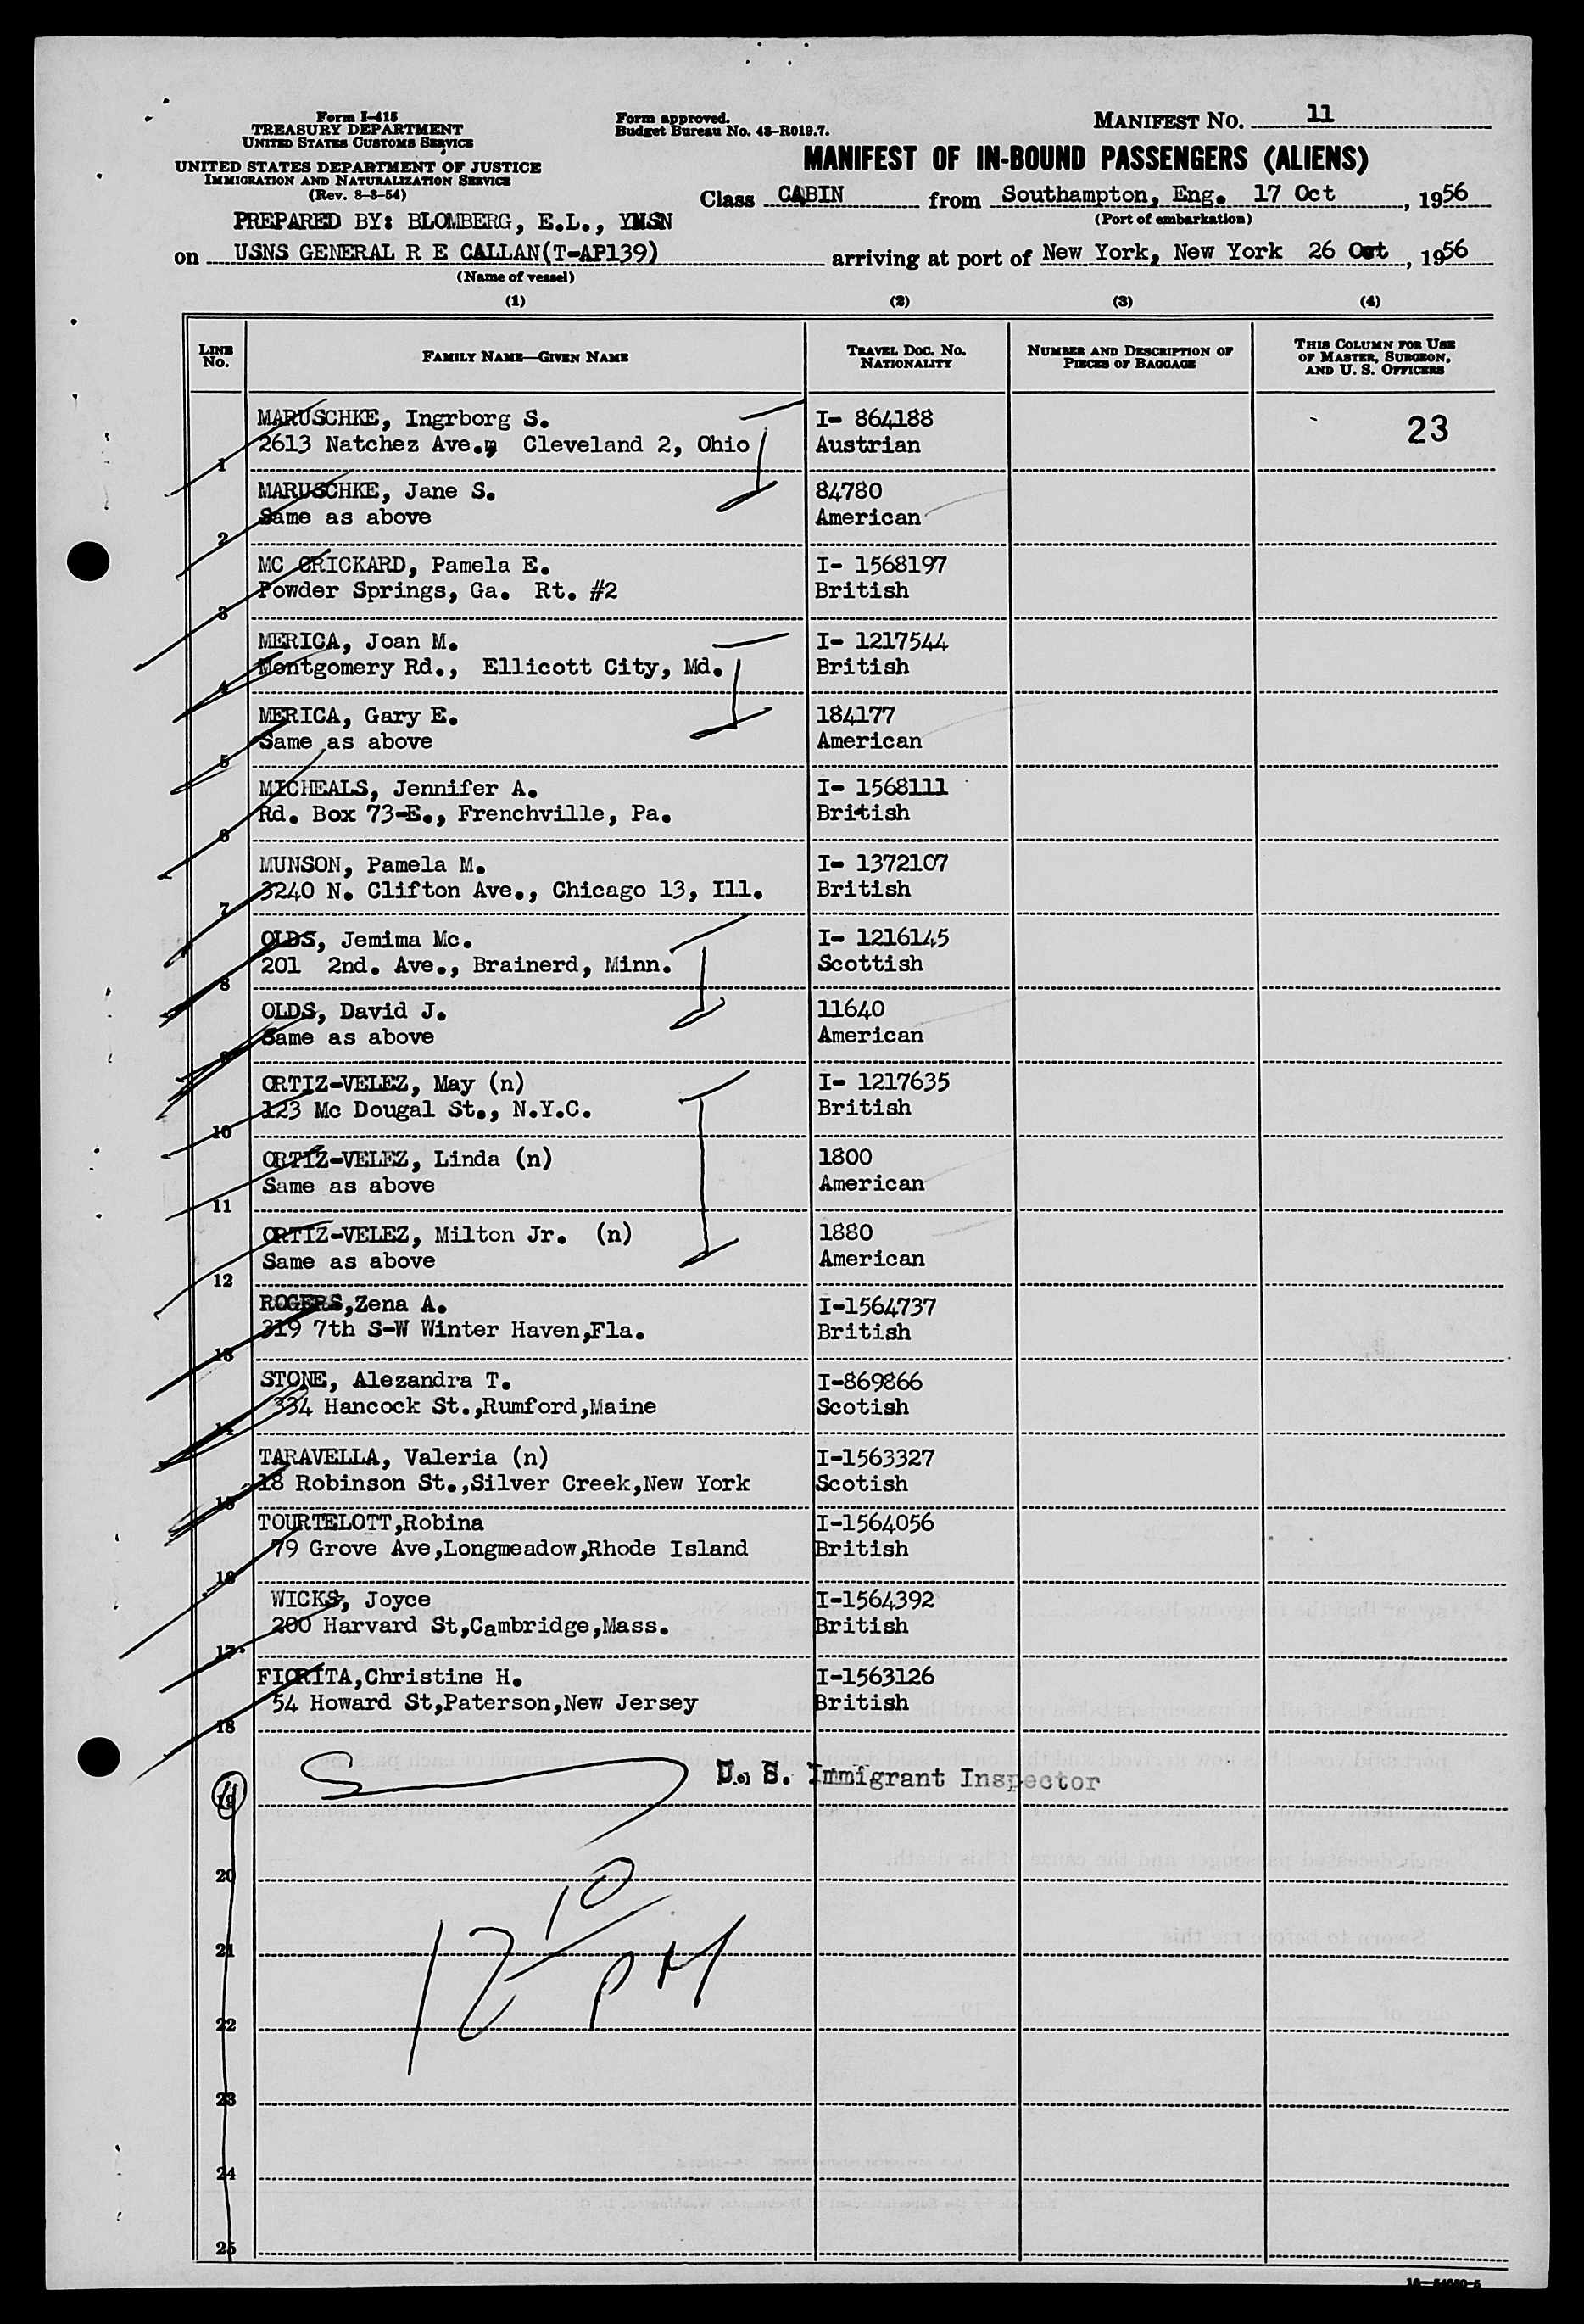 Form I-415
TREASURY DEPARTMENT
UNITED STATES CUSTOMS SERVICE
UNITED STATES DEPARTMENT OF JUSTICE
IMMIGRATION AND NATURALIZATION SERVICE
(Rev. 8-3-54)
Form approved.
Budget Bureau No. 43-R019.7.
MANIFEST NO. 11
MANIFEST OF IN-BOUND PASSENGERS (ALIENS)
Class CABIN from Southampton, Eng. 17 Oct, 1956
(Port of embarkation)
PREPARED BY: BLOMBERG, E.L., YNSN
on USNS GENERAL R E CALLAN(T-AP139) arriving at port of New York, New York 26 Oct, 1956
(Name of vessel)
(1) (2) (3) (4)
LINE NO.
FAMILY NAME—GIVEN NAME
TRAVEL DOC. NO. NATIONALITY
NUMBER AND DESCRIPTION OF PIECES OF BAGGAGE
THIS COLUMN FOR USE OF MASTER, SURGEON, AND U. S. OFFICERS
MARUSCHKE, Ingrborg S. I- 864188 23
1 2613 Natchez Ave., Cleveland 2, Ohio Austrian
MARUSCHKE, Jane S. 84780
2 Same as above American
MC CRICKARD, Pamela E. I- 1568197
3 Powder Springs, Ga. Rt. #2 British
MERICA, Joan M. I- 1217544
4 Montgomery Rd., Ellicott City, Md. British
MERICA, Gary E. 184177
5 Same as above American
MICHEALS, Jennifer A. I- 1568111
6 Rd. Box 73-E., Frenchville, Pa. British
MUNSON, Pamela M. I- 1372107
7 3240 N. Clifton Ave., Chicago 13, Ill. British
OLDS, Jemima Mc. I- 1216145
8 201 2nd. Ave., Brainerd, Minn. Scottish
OLDS, David J. 11640
9 Same as above American
ORTIZ-VELEZ, May (n) I- 1217635
10 123 Mc Dougal St., N.Y.C. British
ORTIZ-VELEZ, Linda (n) 1800
11 Same as above American
ORTIZ-VELEZ, Milton Jr. (n) 1880
12 Same as above American
ROGERS,Zena A. I-1564737
13 319 7th S-W Winter Haven,Fla. British
STONE, Alezandra T. I-869866
14 334 Hancock St.,Rumford,Maine Scotish
TARAVELLA, Valeria (n) I-1563327
15 18 Robinson St.,Silver Creek,New York Scotish
TOURTELOTT,Robina I-1564056
16 79 Grove Ave,Longmeadow,Rhode Island British
WICKS, Joyce I-1564392
17 200 Harvard St,Cambridge,Mass. British
FIORITA,Christine H. I-1563126
18 54 Howard St,Paterson,New Jersey British
U. S. Immigrant Inspector
19
20
12 10 PM
21
22
23
24
25